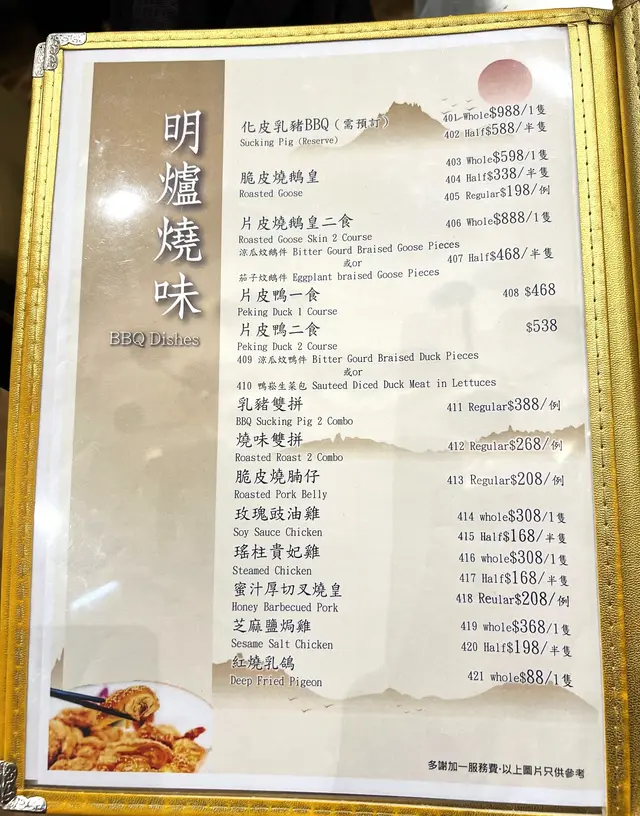 明爐燒味
BBQ Dishes
化皮乳豬BBQ（需預訂） 401 Whole$988/1隻
Sucking Pig (Reserve) 402 Half$588/半隻
403 Whole$598/1隻
脆皮燒鵝皇 404 Half$338/半隻
Roasted Goose 405 Regular$198/例
片皮燒鵝皇二食 406 Whole$888/1隻
Roasted Goose Skin 2 Course
涼瓜炆鵝件 Bitter Gourd Braised Goose Pieces
或or 407 Half$468/半隻
茄子炆鵝件 Eggplant braised Goose Pieces
片皮鴨一食 408 $468
Peking Duck 1 Course
片皮鴨二食 $538
Peking Duck 2 Course
409 涼瓜炆鴨件 Bitter Gourd Braised Duck Pieces
或or
410 鴨崧生菜包 Sauteed Diced Duck Meat in Lettuces
乳豬雙拼 411 Regular$388/例
BBQ Sucking Pig 2 Combo
燒味雙拼 412 Regular$268/例
Roasted Roast 2 Combo
脆皮燒腩仔 413 Regular$208/例
Roasted Pork Belly
玫瑰豉油雞 414 whole$308/1隻
Soy Sauce Chicken 415 Half$168/半隻
瑤柱貴妃雞 416 whole$308/1隻
Steamed Chicken 417 Half$168/半隻
蜜汁厚切叉燒皇 418 Reular$208/例
Honey Barbecued Pork
芝麻鹽焗雞 419 whole$368/1隻
Sesame Salt Chicken 420 Half$198/半隻
紅燒乳鴿 421 whole$88/1隻
Deep Fried Pigeon
多謝加一服務費·以上圖片只供參考